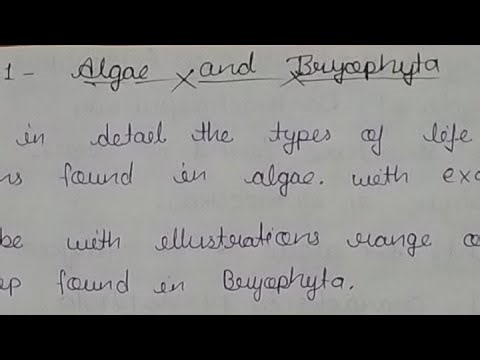 1- Algae and Bryophyta
in detail the types of life
ns found in algae. with exa
be with illustrations range o
ap found in Bryophyta.